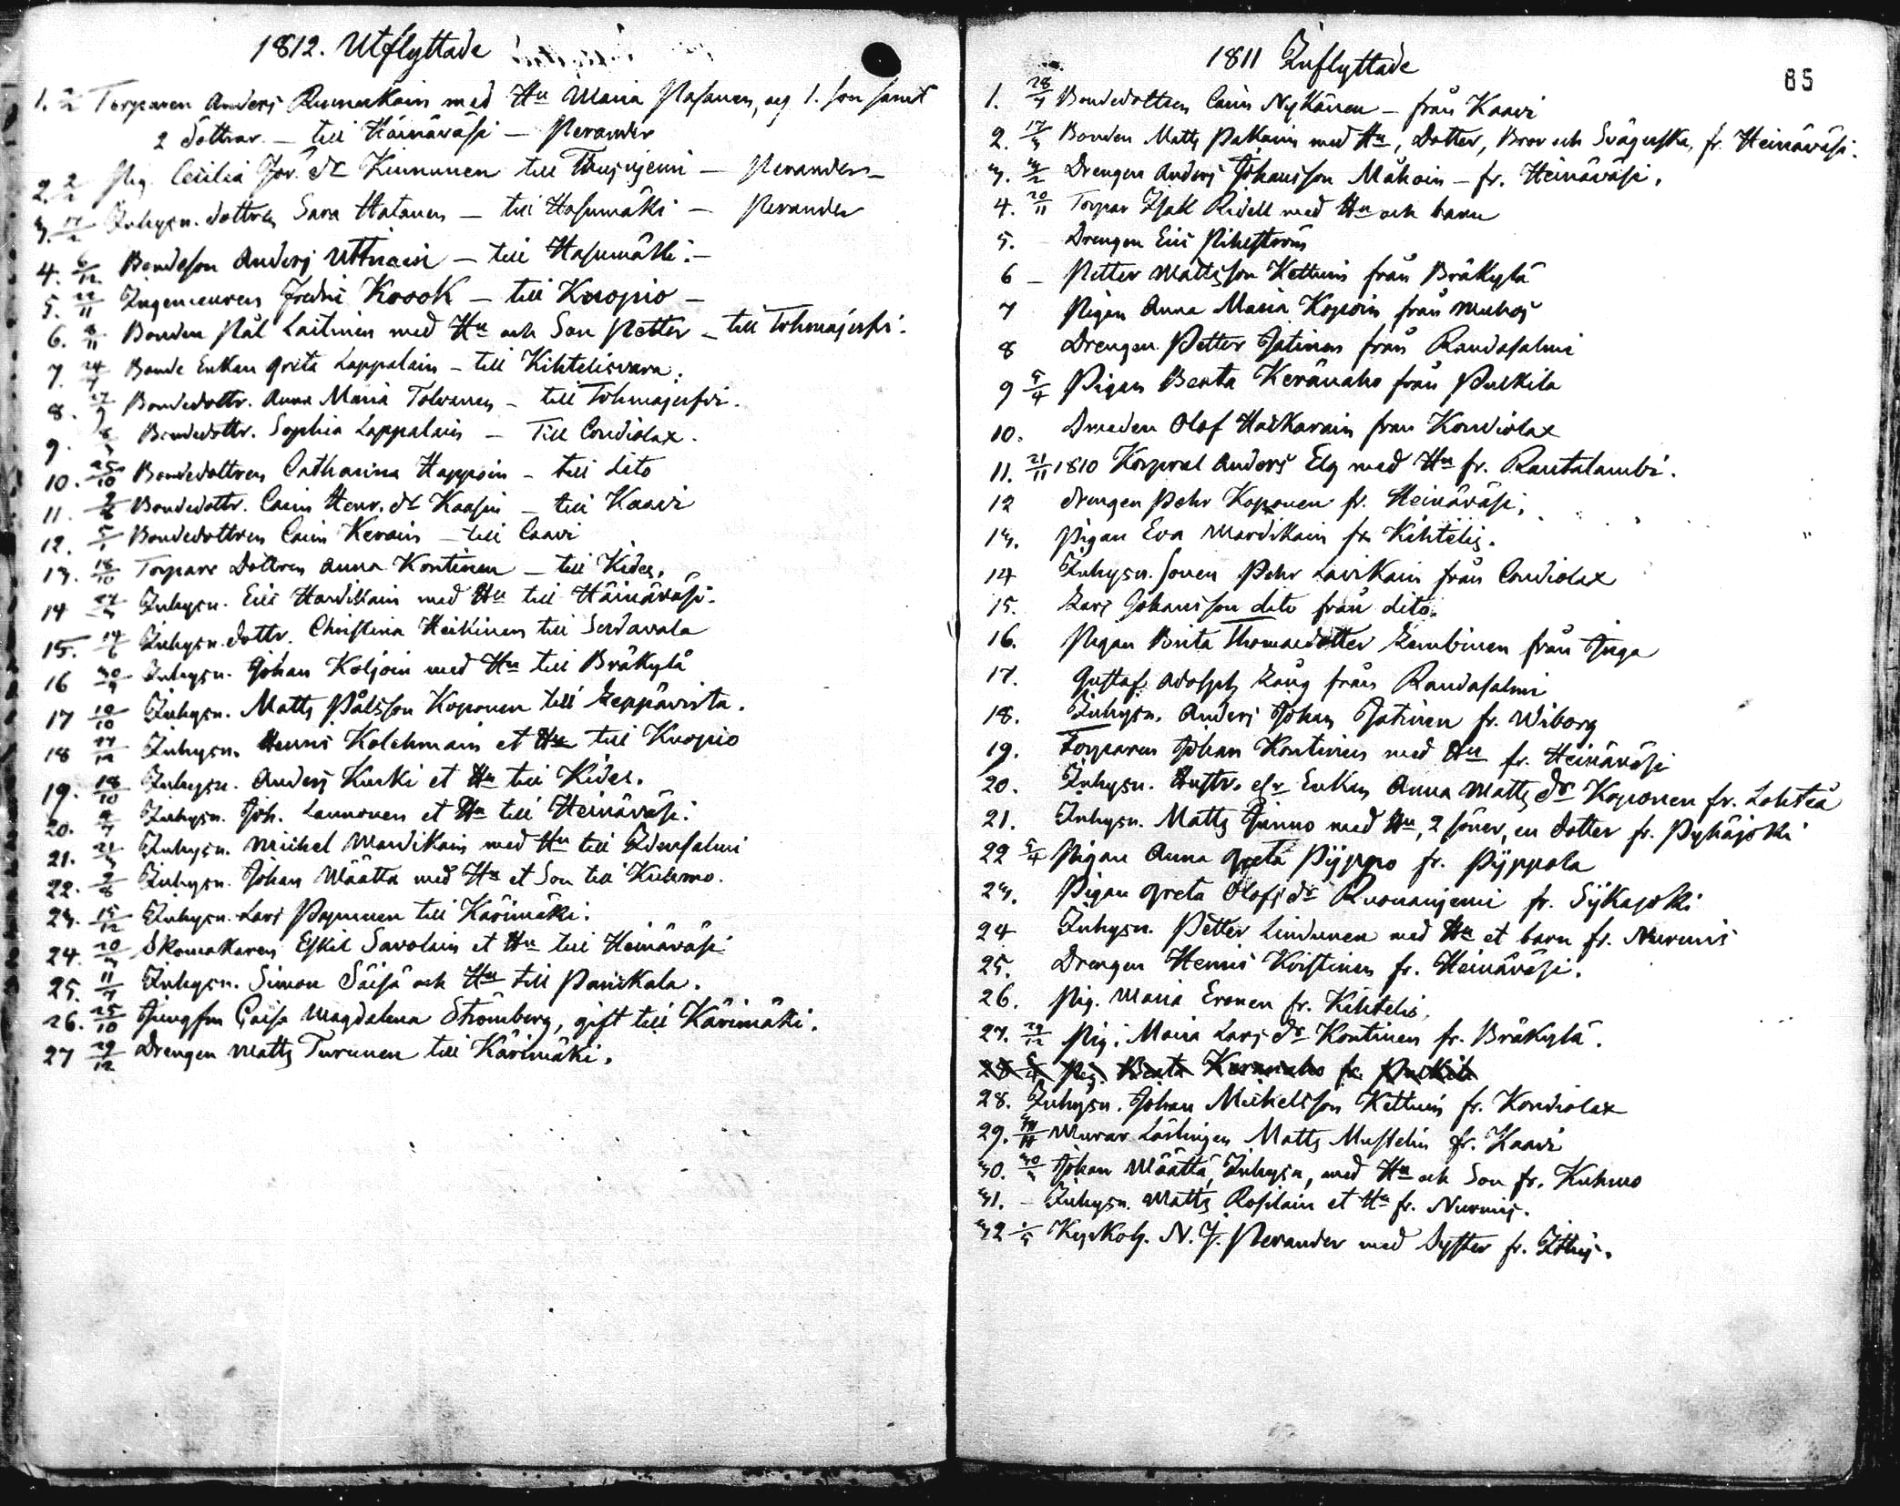 1812. Utflyttade
1. 2/2 Torparen Anders Runukain med Hu Maria Pasanen, og 1. son samt
2 döttrar. – till Häinäväsi – Perander
2. 2/2 Pig. Cecilia Jör. dr Kinnunen till – Perander –
3. 17/2 Inhysn. dottren Sara Hatanen – till Hasumäki – Perander
4. 6/12 Bondeson Anders – till Hasumäki. –
5. 22/11 Ingenieuren Fredric Krook – till Knopio –
6. 8/11 Bonden Pål Laitinen med Hu och Son Petter – till Tohmajerfvi.
7. 24/7 Bonde Enkan Greta Lappalain – till Kihtelisvara.
8. Bondedottr. Anna Maria Tolvanen – till Tohmajerfvi.
9. Bondedottr. Sophia Lappalain – Till Condiolax.
10. 25/10 Bondedottren Catharina Happoin – till dito
11. Bondedottr. Carin Henr. dr Kaasin – till Kaavi
12. 5/1 Bondedottren Carin Kerain – till Caavi
13. 18/10 Torpare Dottren Anna Kontinen – till Kides.
14 Inhysn. Eric Hardikain med Hu till Häinäväsi.
15. 14/6 Inhysn. dottr. Christina Heikinen till Serdavala
16 30/9 Inhysn. Johan Koljoin med Hu till Bräkylä
17 10/10 Inhysn. Matts Pålsson Koponen till Leppävirta.
18 17/12 Inhysn. Henric Kolehmain et Hu till Knopio
19. 18/10 Inhysn. Anders Kurki et Hu till Kides.
20. Inhysn. Joh. Lannonen et Hu till Heinäväsi.
21. Inhysn. Michel Mardikain med Hu till Idensalmi
22. 2/8 Inhysn. Johan Määtta med Hu et Son till Kuhmo.
23. 15/12 Inhysn. Lars Papunen till Kärimäki.
24. Skomakaren Eskil Savolain et Hu till Heinäväsi
25. 11/7 Inhysn. Simon Säisä och Hu till Parikala.
26. 25/10 Jungfru Caisa Magdalena Strömberg, gift till Kärimäki.
27 29/12 Drengen Matts Turunen till Kärimäki.
1811 Inflyttade
85
1. 28/7 Bondedottren Carin Nykänen – från Kaavi
2. Bonden Matts Pakain med Hu, Dotter, Bror och Svägerska, fr. Heinäväsi.
3. Drengen Anders Johansson Måhoin – fr. Heinäväsi.
4. 20/11 Torpar Isak Ridell med Hu och barn
5. Drengen Eric Pihlström
6 – Petter Mattsson Kettuin från Bräkylä
7 Pigan Anna Maria Kopoin från Muhos
8 Drengen Petter Jatinen från Randasalmi
9 5/4 Pigan Beata Keränaho från Pulkila
10. Drengen Olof Hackarain från Kondiolax
11. 21/11 1810 Korporal Anders Elg med Hu fr. Rautalambi.
12 drengen Pehr Koponen fr. Heinäväsi.
13. Pigan Eva Mardikain fr. Kihtelis.
14 Inhysn. Sonen Pehr Lavikain från Condiolax
15. Lars Johansson dito från dito.
16. Pigan Brita Thomaedotter Lembinen från Inga
17. Gustaf Adolph Lång från Randasalmi
18. Inhysn. Anders Johan Jatinen fr. Wiborg
19. Torparen Johan Kontinen med Hu fr. Heinäväsi
20. Inhysn. Hustr. el. Enkan Anna Matts dr Koponen fr. Lohteå
21. Inhysn. Matts Junno med Hu, 2 söner, en dotter fr. Pyhäjoki
22 5/4 Pigan Anna Greta Pÿppo fr. Pÿppola
23. Pigan Greta Olofs dr Ruonanjemi fr. Sijkajoki
24 Inhysn. Petter Lindunen med Hu et barn fr. Nurmis
25. Drengen Henric Kristinen fr. Heinäväsi.
26. Pig. Maria Eronen fr. Kihtelis.
27. 29/12 Pig. Maria Lars dr Kontinen fr. Bräkylä.
28 5/4 Pig. Beata Keranaho fr. Pulkila
28. Inhysn. Johan Mickelsson Kettuin fr. Kondiolax
29. Murar Lärlingen Matts Mustelin fr. Kaavi
30. Johan Määttä, Inhysn, med Hu och Son fr. Kuhmo
31. – Inhysn. Matts Rosilain et Hu fr. Nurmis.
32 1/5 Kyrkoh. N. J. Perander med Syster fr.